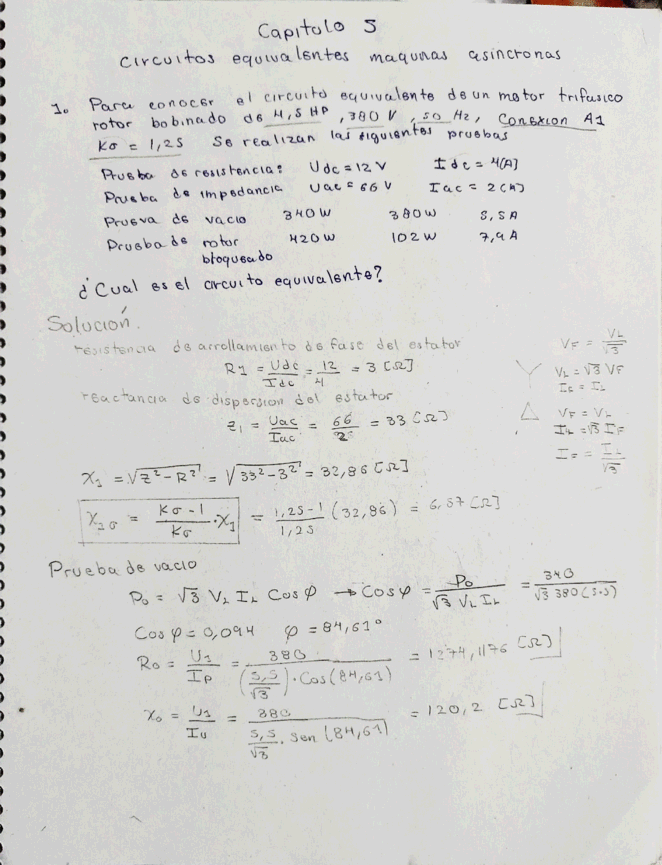 Capitulo 5
circuitos equivalentes maquinas asincronas
1. Para conocer el circuito equivalente de un motor trifasico
rotor bobinado de 4,5 HP, 380 V, 50 Hz, Conexion A1
Kσ = 1,25 Se realizan las siguientes pruebas
Prueba de resistencia: Udc = 12 V Idc = 4[A]
Prueba de impedancia Uac = 66 V Iac = 2[A]
Prueva de vacio 340 W 380 W 5,5 A
Prueba de rotor bloqueado 420 W 102 W 7,9 A
¿Cual es el circuito equivalente?
Solución.
resistencia de arrollamiento de fase del estator
R1 = Udc/Idc = 12/4 = 3 [Ω]
reactancia de dispersion del estator
Z1 = Uac/Iac = 66/2 = 33 [Ω]
VF = VL/√3
Y VL = √3 VF
IF = IL
△ VF = VL
IL = √3 IF
IF = IL/√3
X1 = √(Z² - R²) = √(33² - 3²) = 32,86 [Ω]
X1σ = (Kσ - 1)/Kσ · X1 = (1,25 - 1)/1,25 (32,86) = 6,57 [Ω]
Prueba de vacio
P0 = √3 VL IL Cos φ → Cos φ = P0/(√3 VL IL) = 340/(√3 380 (5.5))
Cos φ = 0,094 φ = 84,61°
R0 = U1/Ip = 380/((5,5/√3) · Cos(84,61)) = 1274,1176 [Ω]
X0 = U1/Iu = 380/(5,5/√3 · sen(84,61)) = 120,2 [Ω]